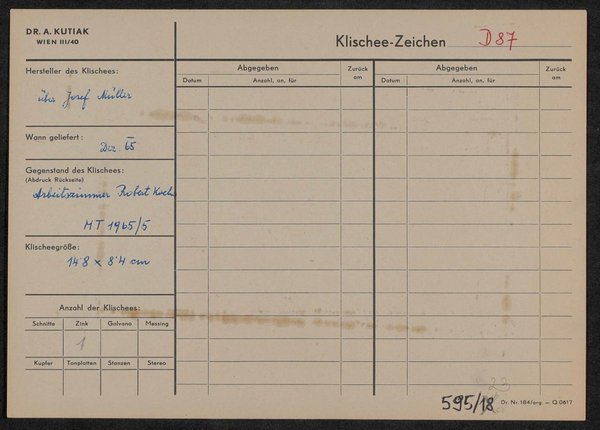 DR. A. KUTIAK
WIEN III/40
Klischee-Zeichen D 87
Hersteller des Klischees:
über Josef Müller
Wann geliefert:
Dez. 65
Gegenstand des Klischees:
(Abdruck Rückseite)
Arbeitszimmer Robert Koch
MT 1965/5
Klischeegröße:
14'8 x 8'4 cm
Anzahl der Klischees:
Schnitte Zink Galvano Messing
1
Kupfer Tonplatten Stanzen Stereo
Abgegeben Zurück am
Datum Anzahl, an, für
Abgegeben Zurück am
Datum Anzahl, an, für
23
595/18
Dr. Nr. 184/org. — Q 0617